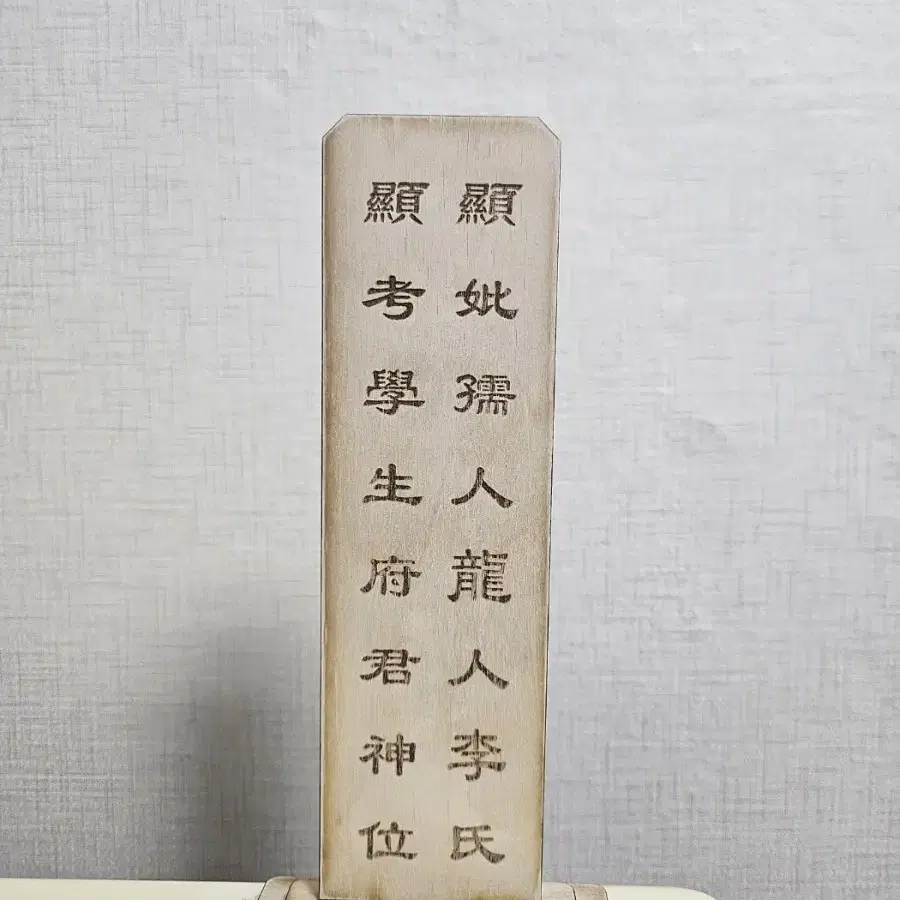 顯妣孺人龍人李氏
顯考學生府君神位